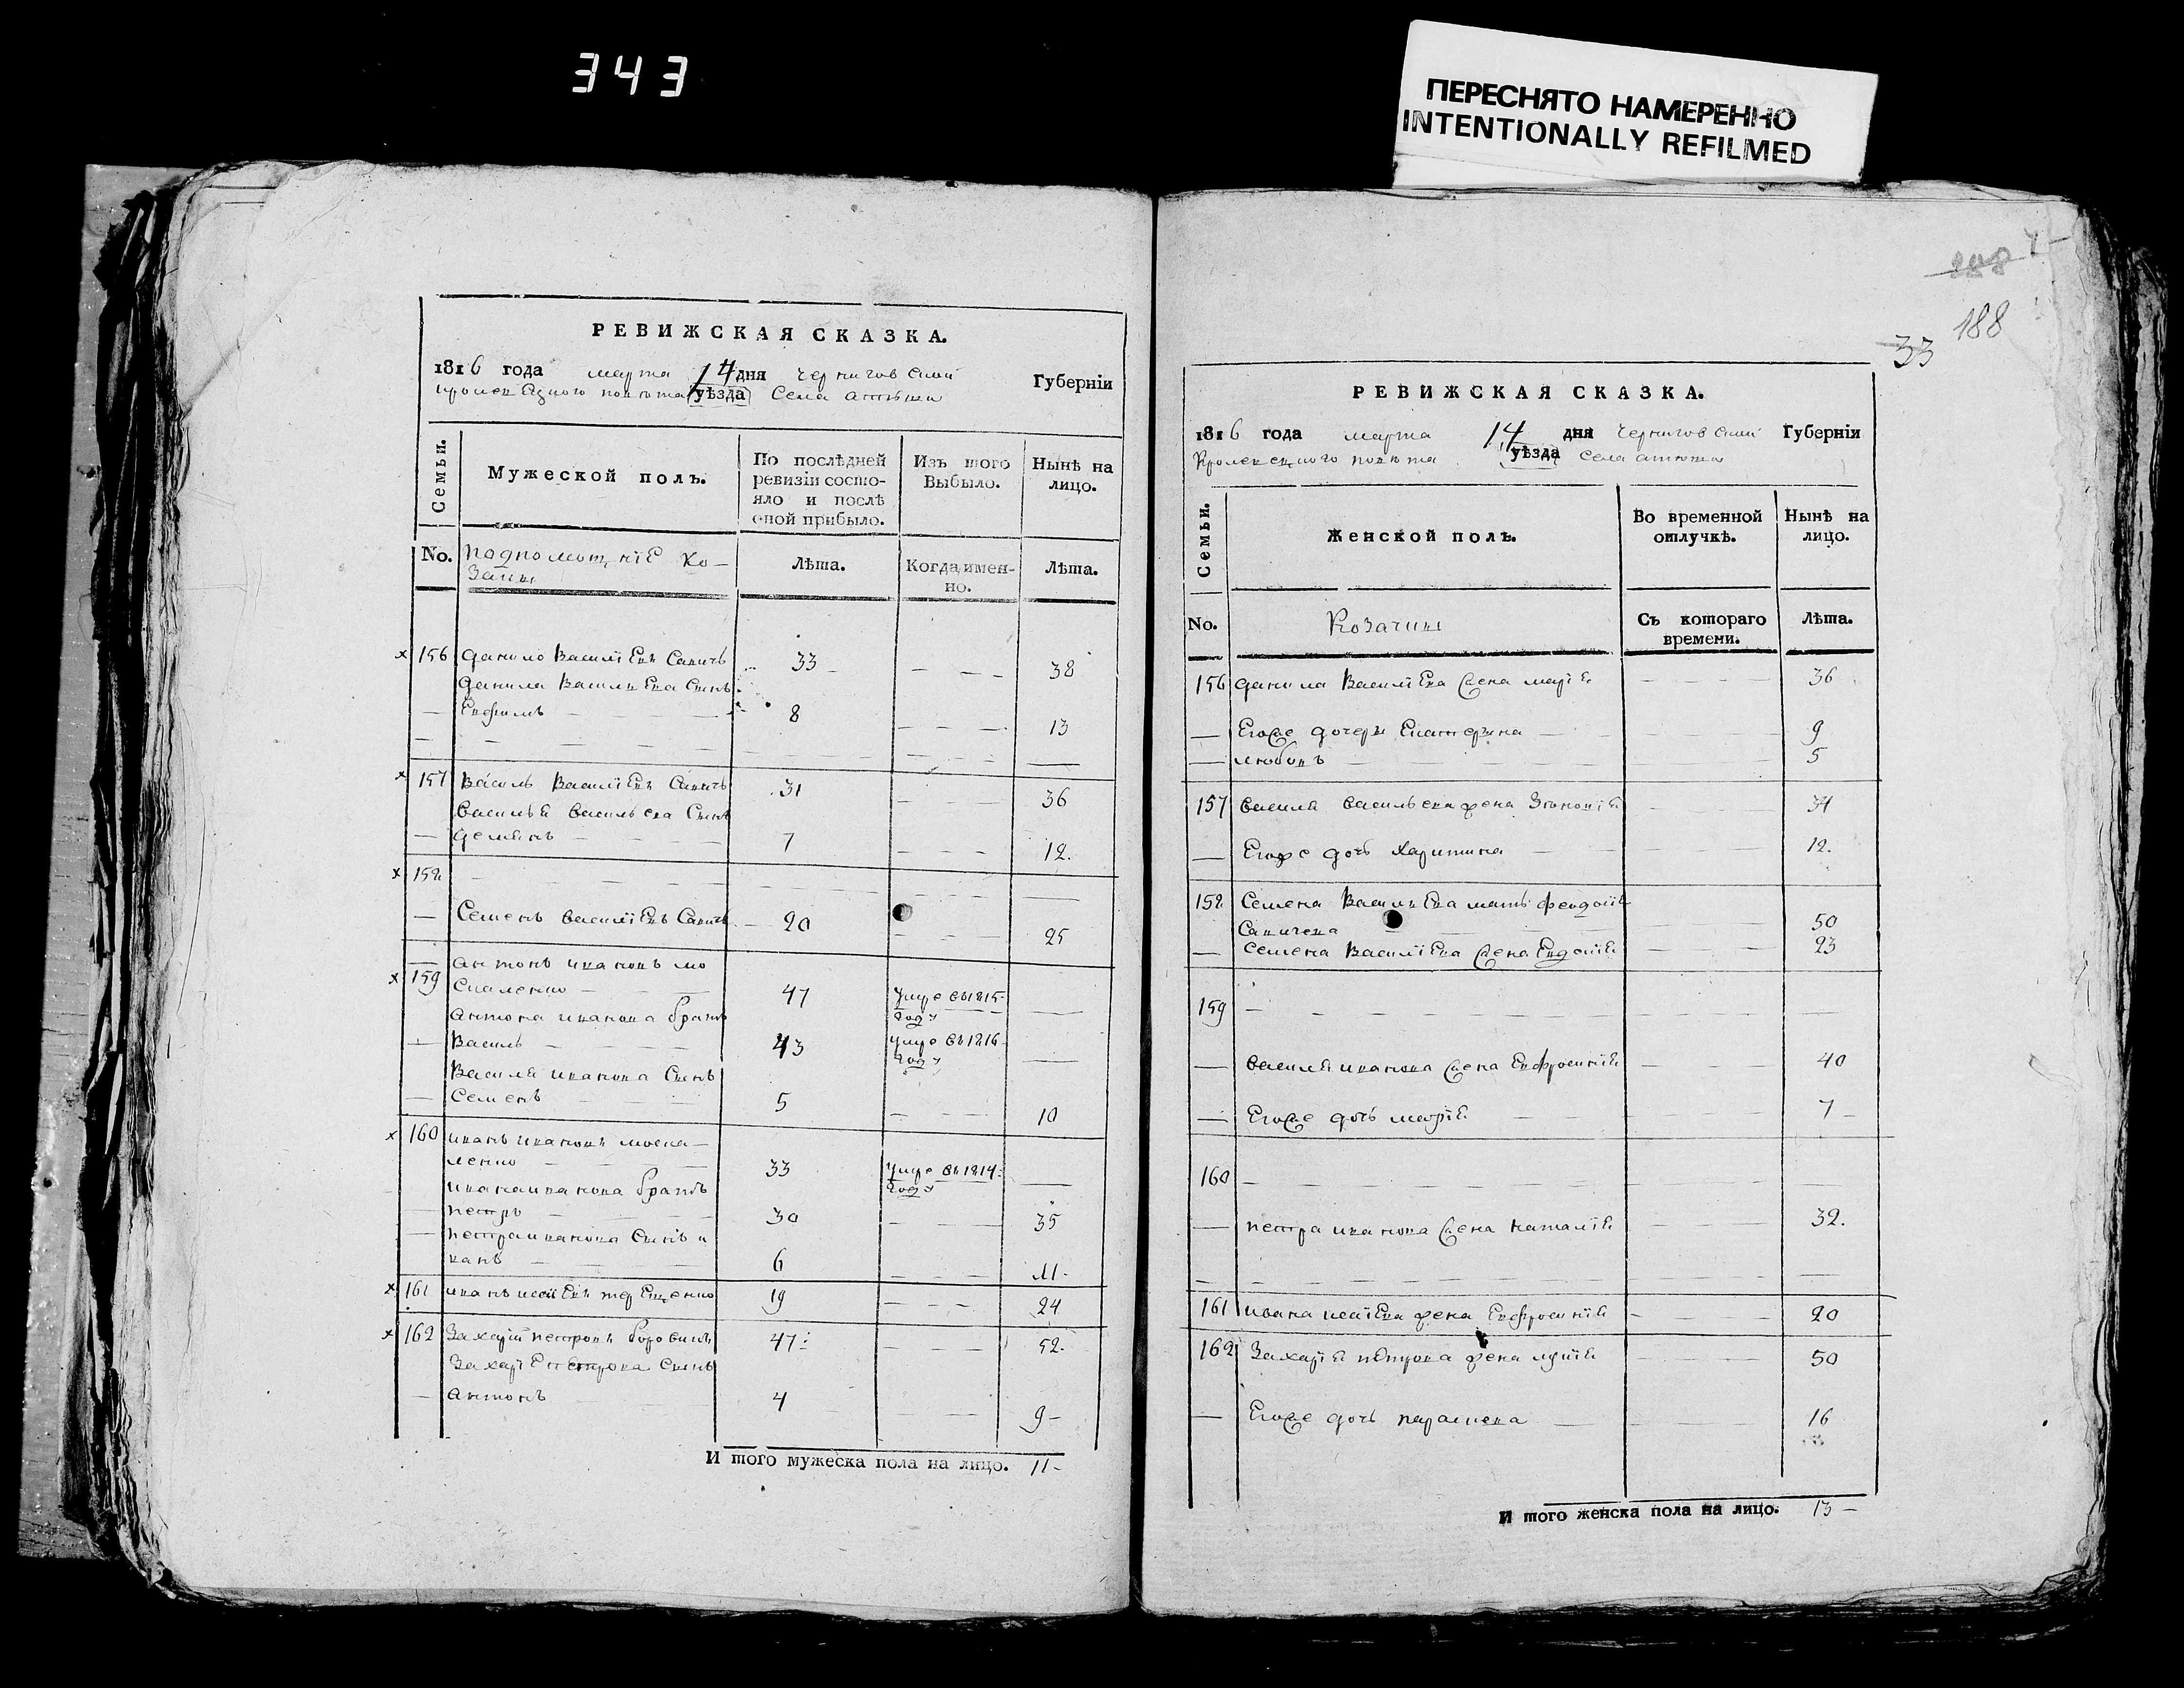 343
ПЕРЕСНЯТО НАМЕРЕННО
INTENTIONALLY REFILMED
РЕВИЖСКАЯ СКАЗКА.
1816 года марта 14 дня Черниговской Губерніи
кролевецкого повѣта уѣзда Села атюши
Семьи.
Мужеской полъ.
По послѣдней ревизіи состояло и послѣ оной прибыло.
Изъ того Выбыло.
Нынѣ на лицо.
No.
подпомощніе ко-
заки
Лѣта.
Когда имен-
но.
Лѣта.
х 156 Данило Василіевъ Савичъ 33 38
Данила Васильева Сынъ
Евфимъ 8 13
х 157 Василь Василіевъ Савичъ 31 36
Василья Васильева Сынъ
Демянъ 7 12.
х 158
Семенъ Василіевъ Савичъ 20 25
Антонъ ивановъ мо
х 159 Скаленко 47 умре въ 1815
году
Антона иванова братъ
Василь 43 умре въ 1816
году
Василя иванова Сынъ
Семенъ 5 10
х 160 иванъ ивановъ моска-
ленко 33 умре въ 1814
году
ивана иванова братъ
петръ 30 35
петра иванова Сынъ и
ванъ 6 11
х 161 иванъ терещенко 19 24
х 162 Захарій петровъ боровикъ 47 52.
Захаріе петрова Сынъ
Антонъ 4 9
И того мужеска пола на лицо. 11
188
33 188
РЕВИЖСКАЯ СКАЗКА.
1816 года марта 14 дня Черниговской Губерніи
Кролевецкого повѣта уѣзда Села атюши
Семьи.
Женской полъ.
Во временной отлучкѣ.
Нынѣ на лицо.
No.
Козачки
Съ котораго времени.
Лѣта.
156 Данила Василіева жена маріѣ 36
Егоже дочери Екатерина 9
любовъ 5
157 Василя Васильева жена Зѣновіѣ 34
Егоже дочь Харитина 12.
158 Семена Васильева мать феодосіѣ
Савичева 50
Семена Василіева жена Евдокіѣ 23
159
Василя иванова жена Евфросиніѣ 40
Егоже дочь маріѣ 7
160
петра иванова жена наталіѣ 32.
161 ивана жена Евфросиніѣ 20
162 Захаріѣ петрова жена лукіѣ 50
Егоже дочь парасковѣ 16
И того женска пола на лицо. 13